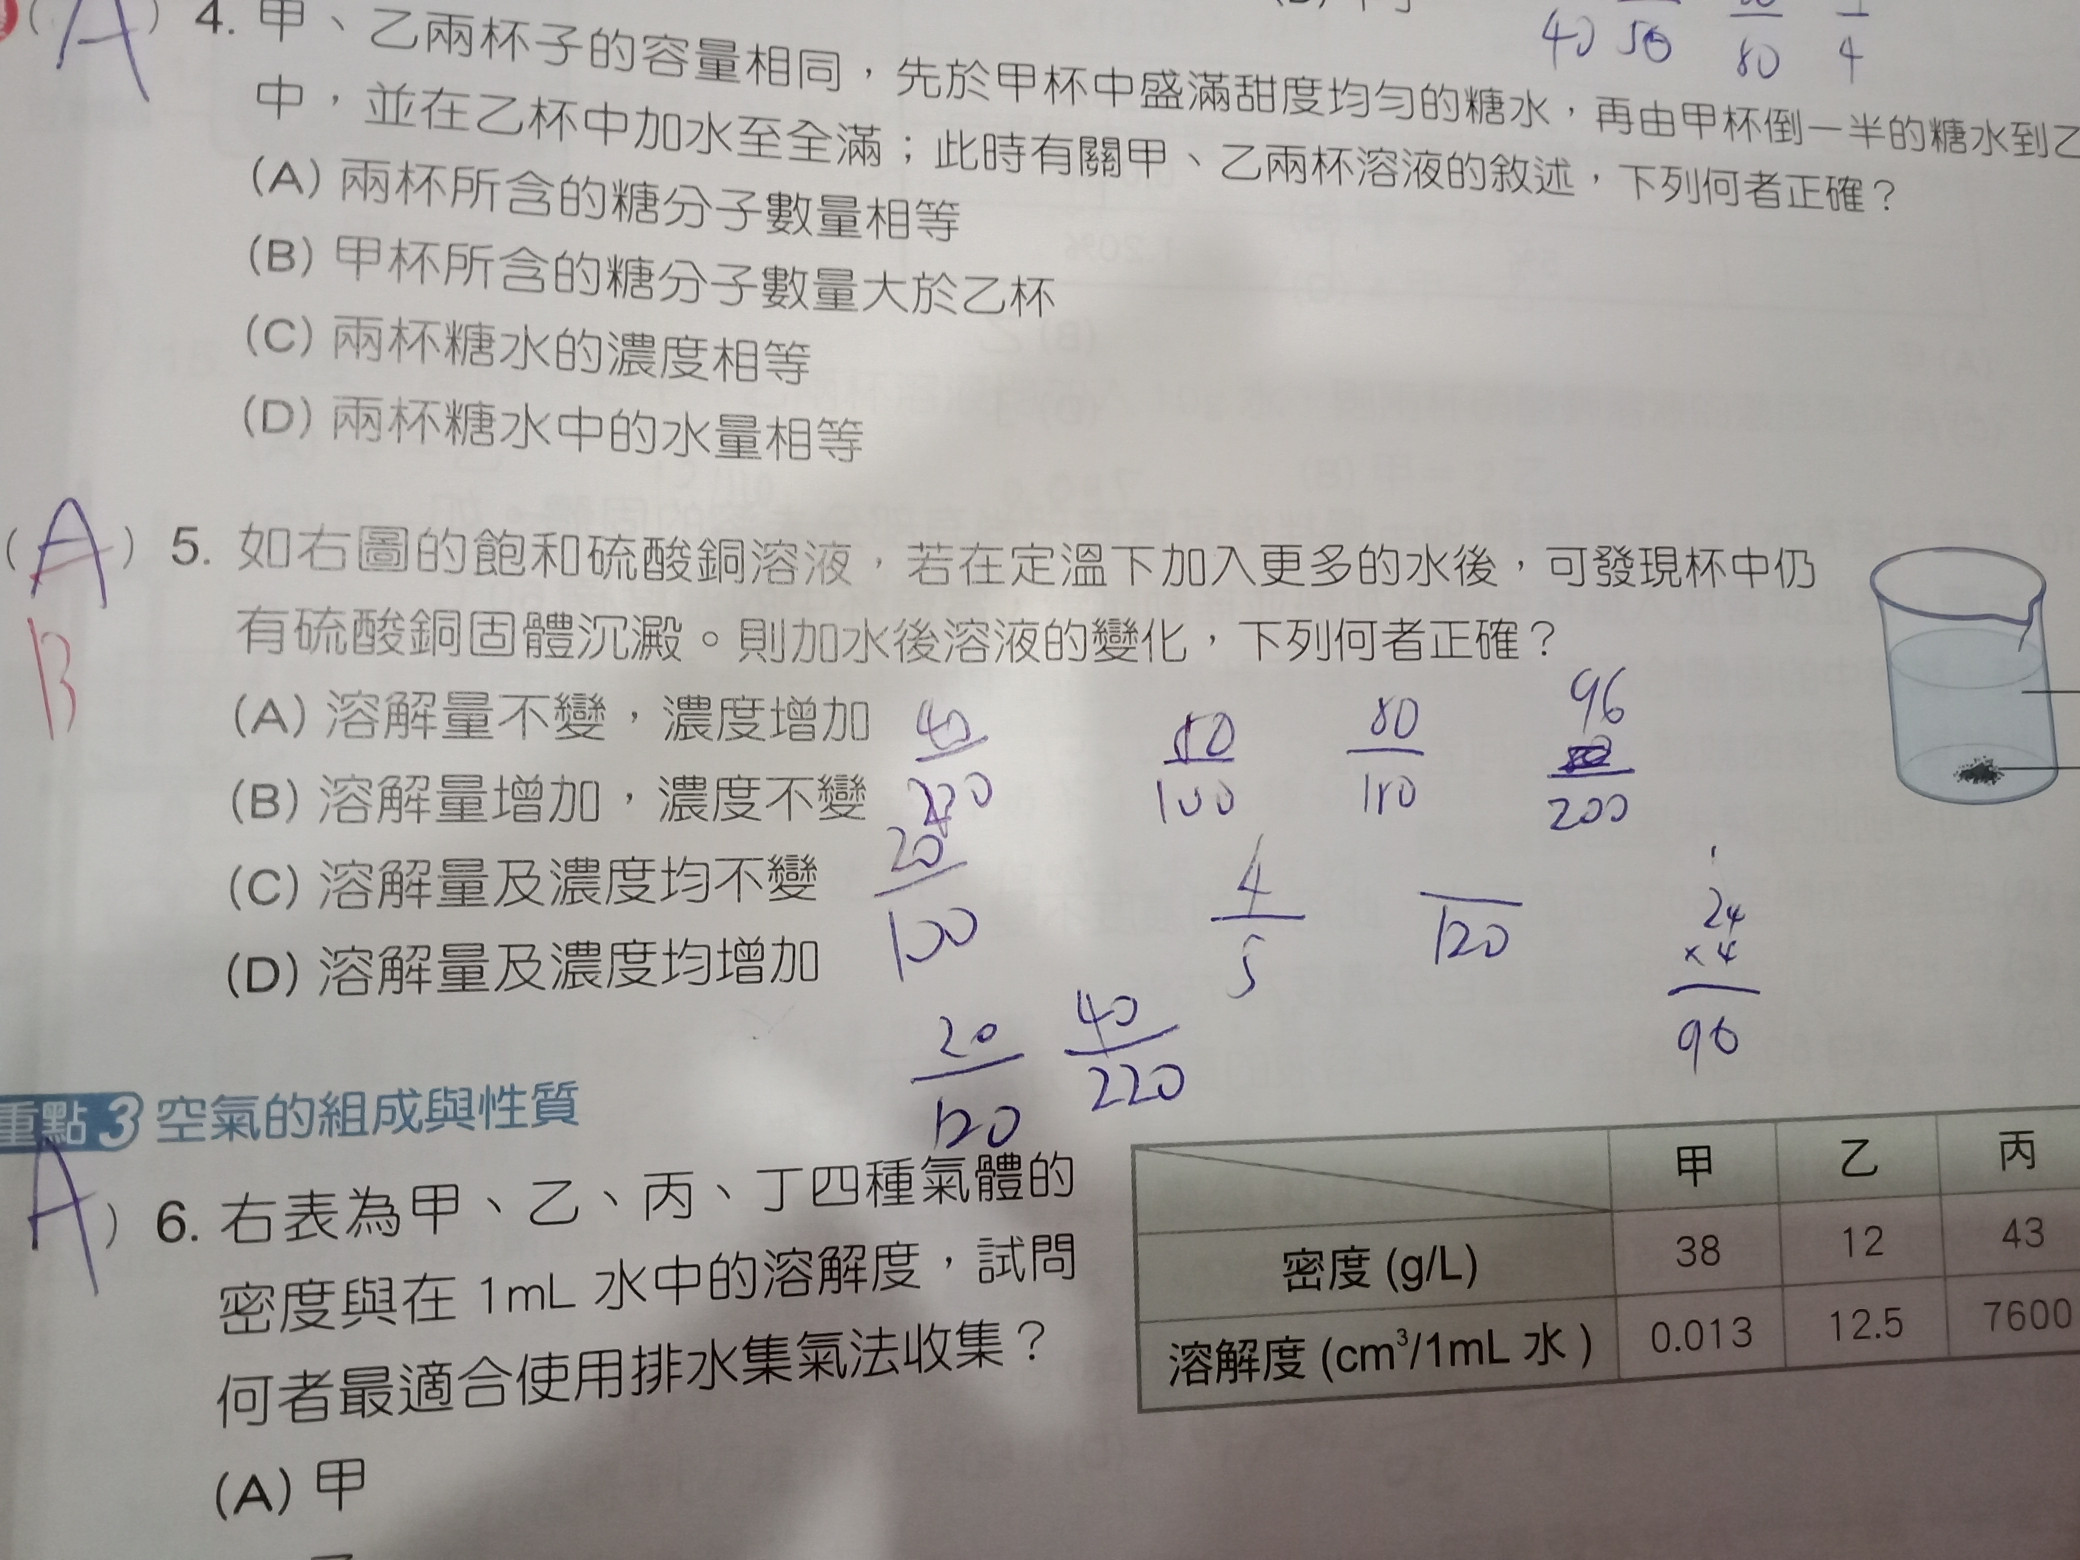 (A) 4. 甲、乙兩杯子的容量相同，先於甲杯中盛滿甜度均勻的糖水，再由甲杯倒一半的糖水到乙
40 50 80 4
中，並在乙杯中加水至全滿；此時有關甲、乙兩杯溶液的敘述，下列何者正確？
(A) 兩杯所含的糖分子數量相等
(B) 甲杯所含的糖分子數量大於乙杯
(C) 兩杯糖水的濃度相等
(D) 兩杯糖水中的水量相等
(A) 5. 如右圖的飽和硫酸銅溶液，若在定溫下加入更多的水後，可發現杯中仍
B
有硫酸銅固體沉澱。則加水後溶液的變化，下列何者正確？
(A) 溶解量不變，濃度增加
40 80 96
(B) 溶解量增加，濃度不變
100 200
(C) 溶解量及濃度均不變
20 4 24
100 5 120 ×4
(D) 溶解量及濃度均增加
96
20 40
120 220
重點3 空氣的組成與性質
A) 6. 右表為甲、乙、丙、丁四種氣體的
密度與在 1mL 水中的溶解度，試問
何者最適合使用排水集氣法收集？
甲 乙 丙
密度 (g/L) 38 12 43
溶解度 (cm³/1mL 水) 0.013 12.5 7600
(A) 甲